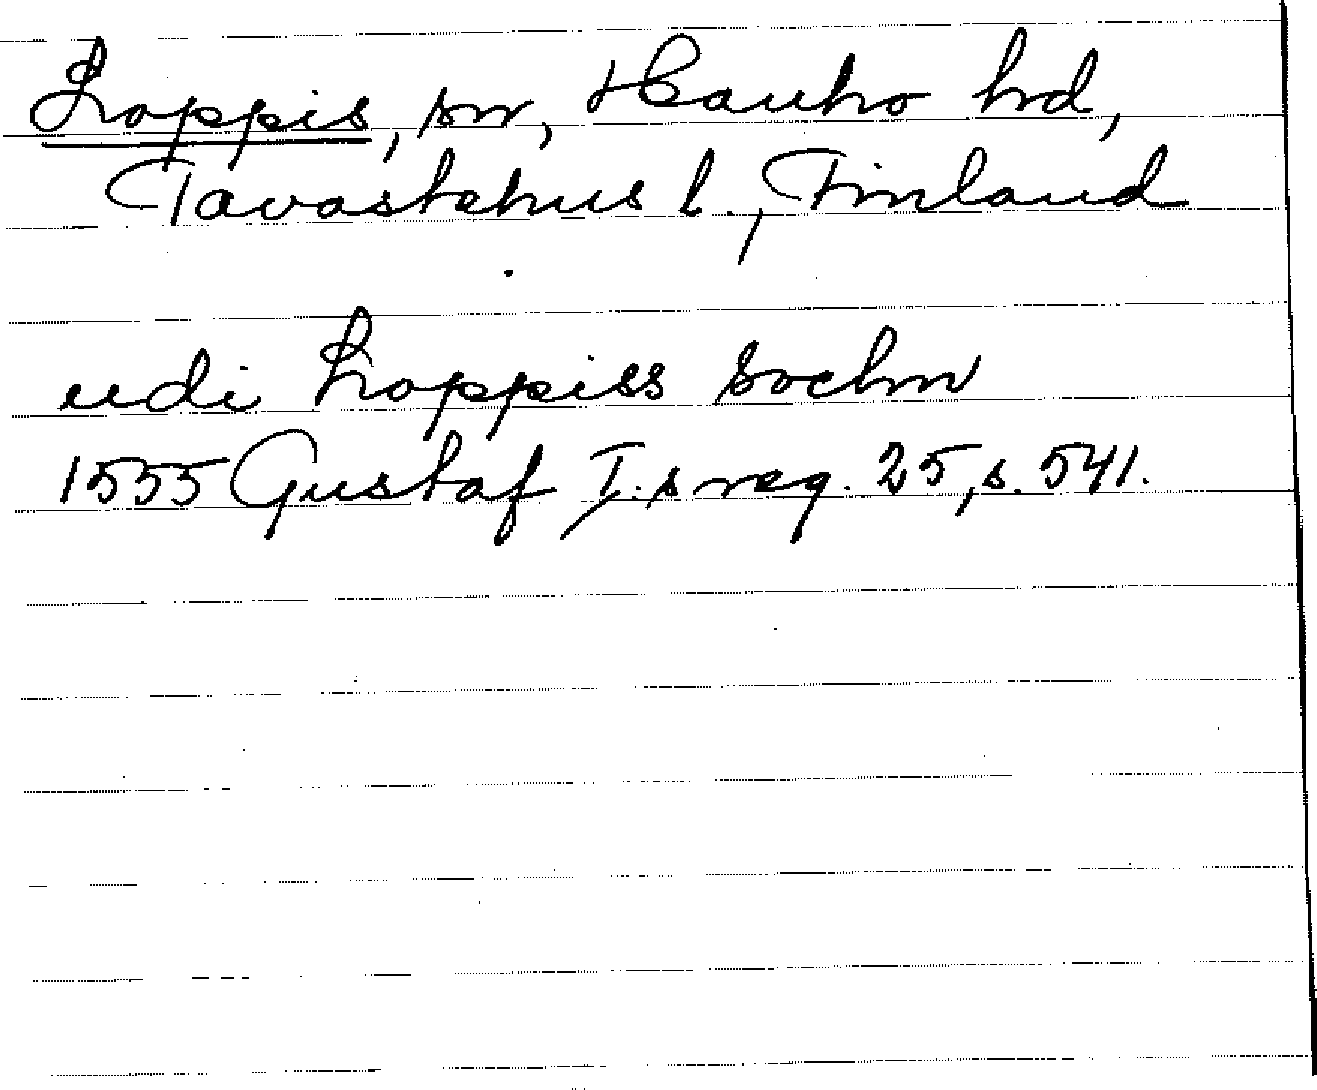 Loppis, sn, Hauho hd,
Tavastehus l., Finland
udi Loppiss sochn
1555 Gustaf I:s reg. 25, s. 541.